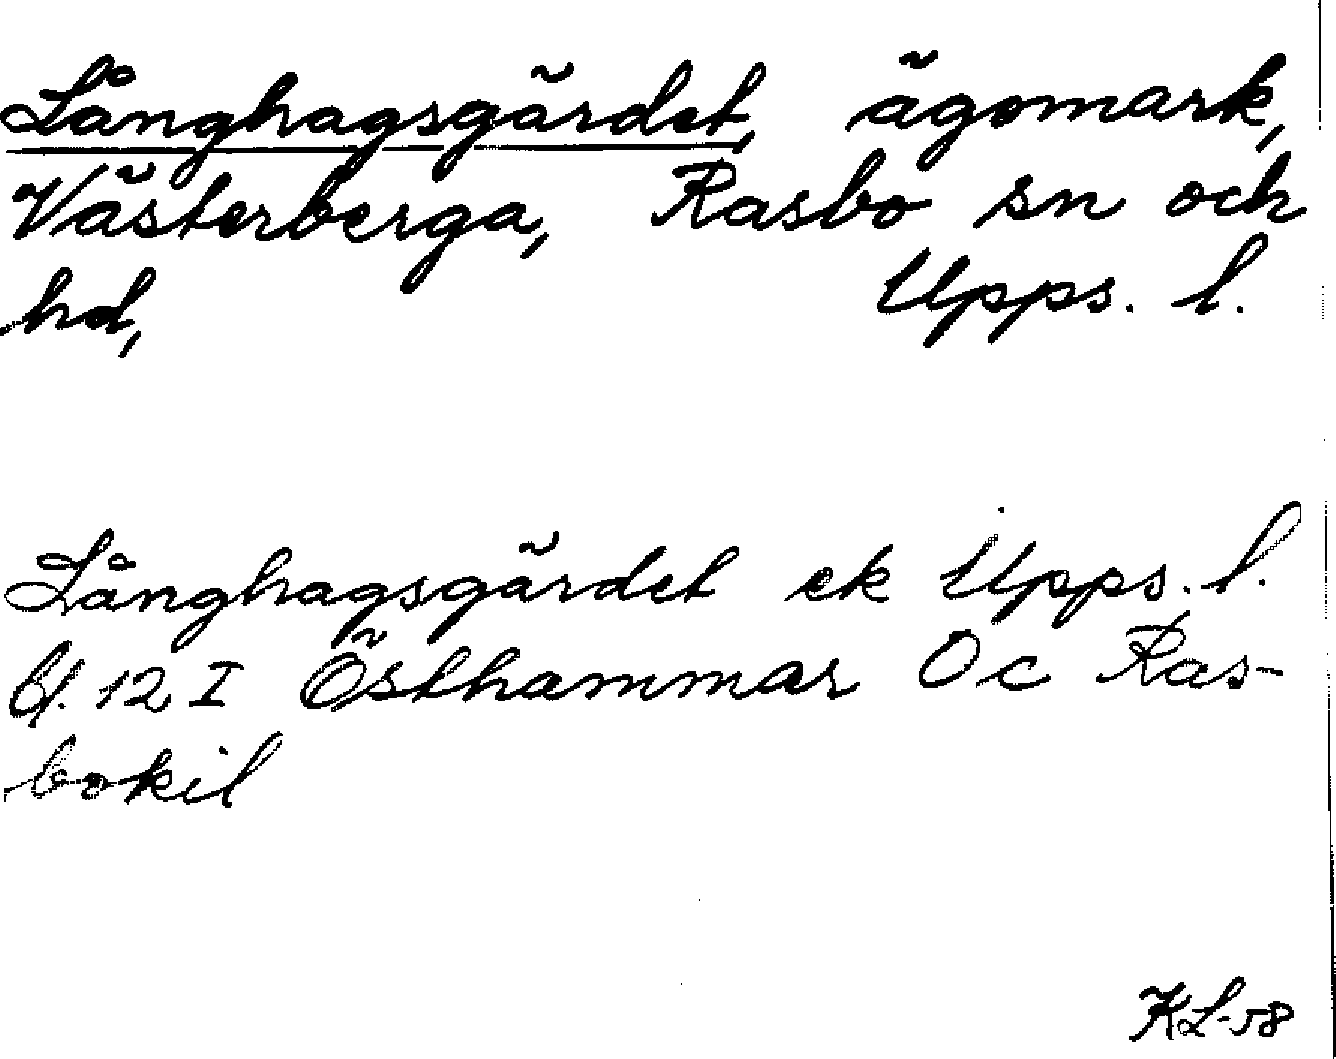 Långhagsgärdet, ägomark,
Västerberga, Rasbo sn och
hd, Upps. l.
Långhagsgärdet ek Upps. l.
bl. 12 I Östhammar Oc Ras-
bokil
KL-58